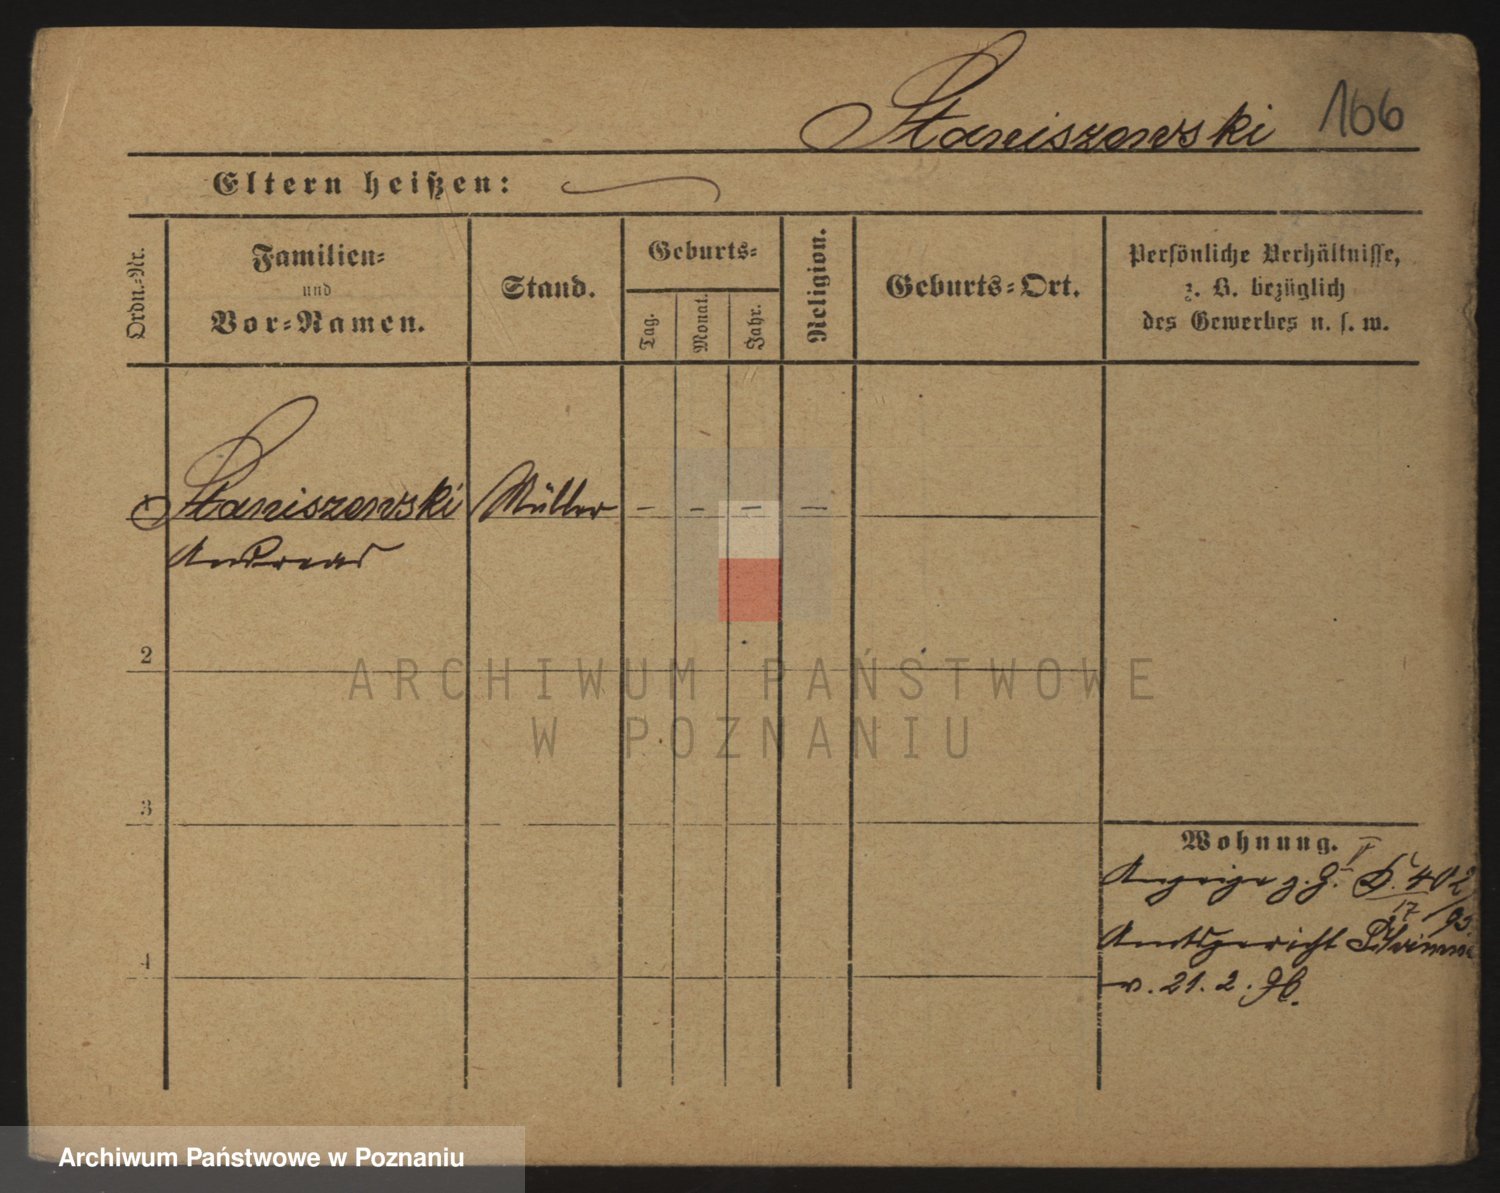 Staniszewski 166
Eltern heißen:
Ordn.-Nr.
Familien-
und
Vor-Namen.
Stand.
Geburts-
Tag.
Monat.
Jahr.
Religion.
Geburts-Ort.
Persönliche Verhältnisse,
z. B. bezüglich
des Gewerbes u. s. w.
1 Staniszewski Müller - - - -
Andreas
2
ARCHIWUM PAŃSTWOWE
W POZNANIU
3
Wohnung.
Anzeige z. J. D. 402
17 / 95.
Amtsgericht
v. 21. 2. 96.
4
Archiwum Państwowe w Poznaniu